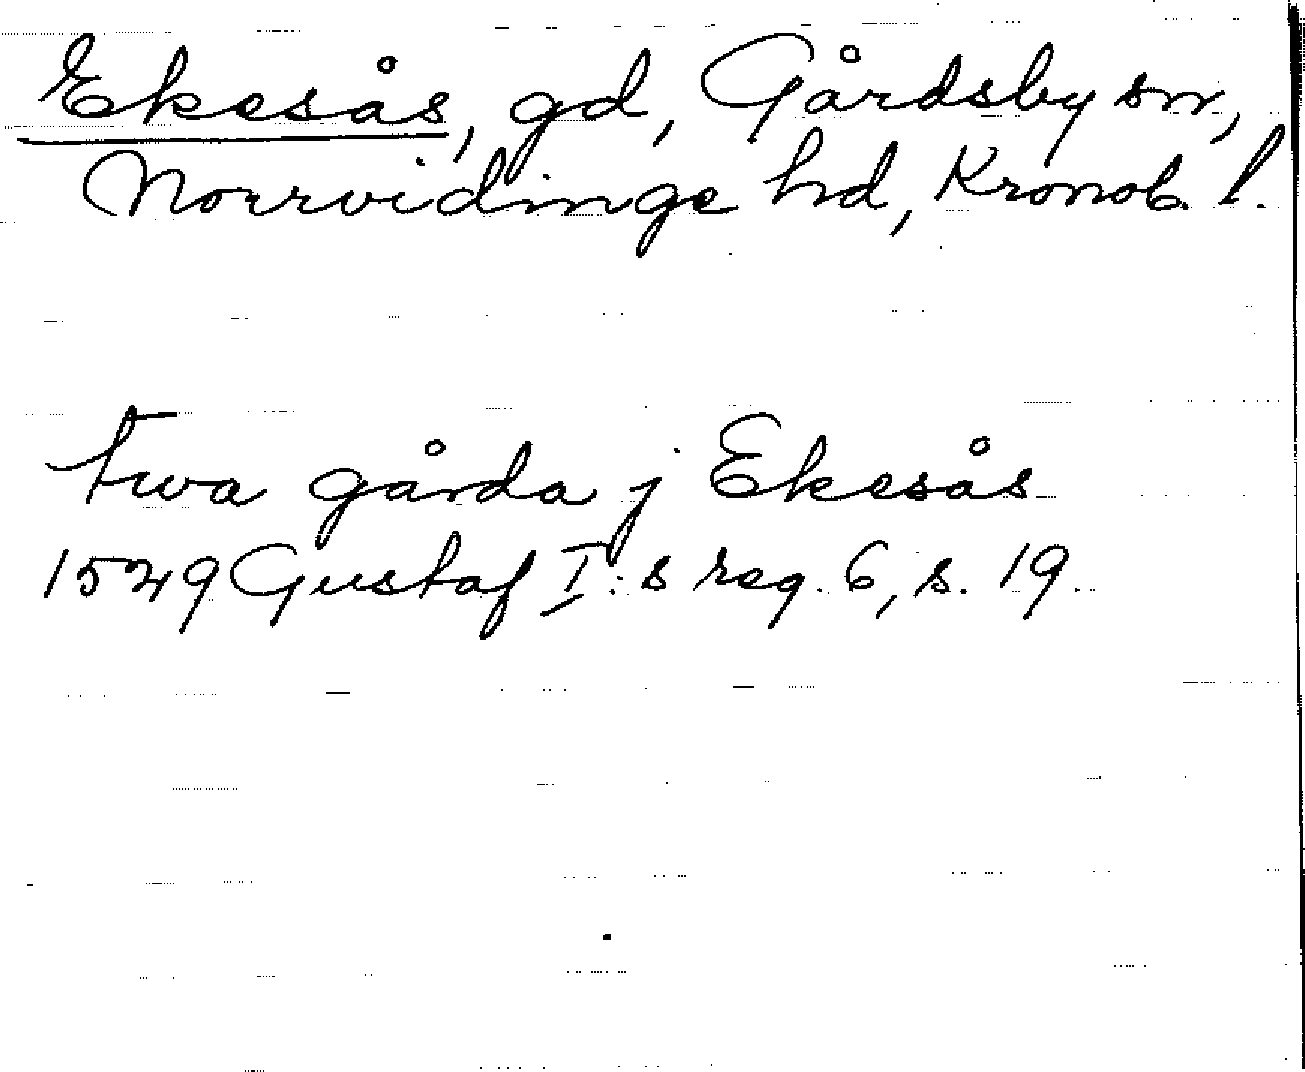 Ekesås, gd, Gårdsby sn,
Norrvidinge hd, Kronob. l.
twa gårda j Ekesås
1529 Gustaf I:s reg. 6, s. 19.